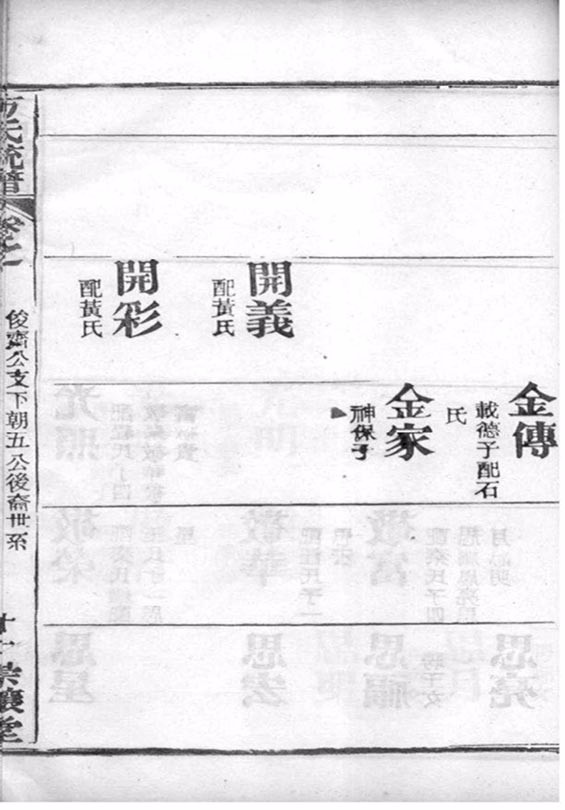 金傳
載德子配石
氏
金家
神保子
開義
配黃氏
開彩
配黃氏
方氏統譜
卷之
俊齋公支下朝五公後裔世系
堂